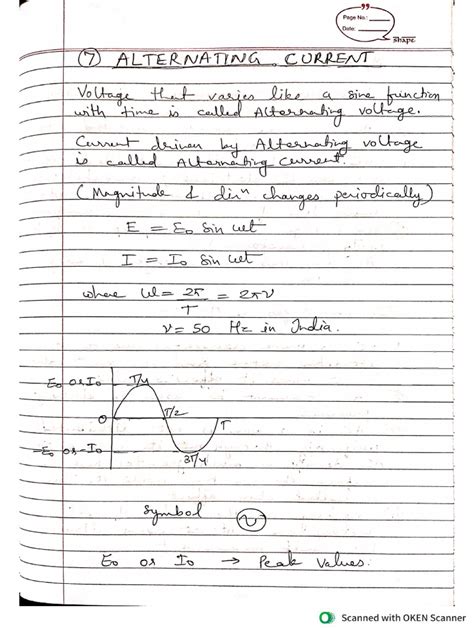 Page No.:
Date:
Shape
(7) ALTERNATING CURRENT
Voltage that varies like a sine function
with time is called Alternating voltage.
Current driven by Alternating voltage
is called Alternating Current.
(Magnitude & dirⁿ changes periodically)
E = E₀ Sin ωt
I = I₀ Sin ωt
where ω = 2π/T = 2πν
ν = 50 Hz in India.
E₀ or I₀ T/4
O T/2 T
-E₀ or -I₀ 3T/4
Symbol
E₀ or I₀ → Peak Values.
Scanned with OKEN Scanner